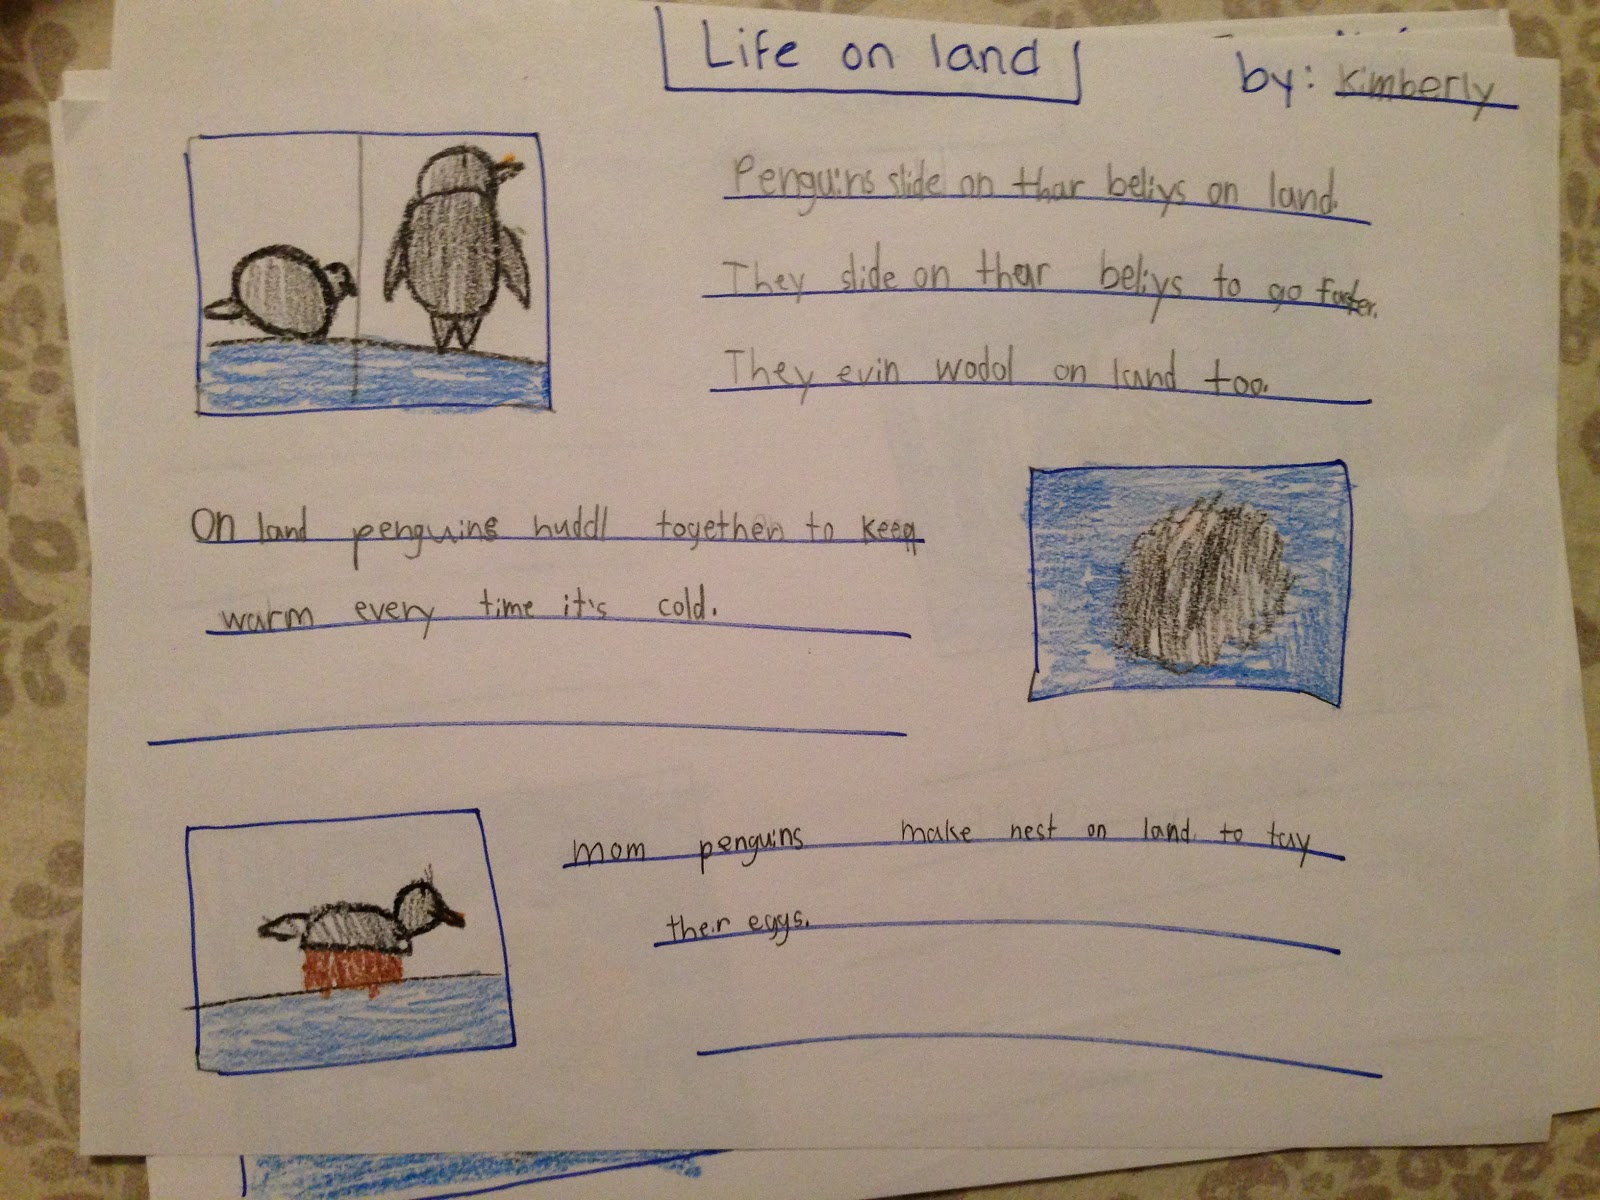 Life on land
by: Kimberly
Penguins slide on thar beliys on land.
They slide on thear beliys to go faster.
They evin wodol on land too.
On land penguins huddl together to keep
warm every time it's cold.
mom penguins make nest on land to lay
their eggs.